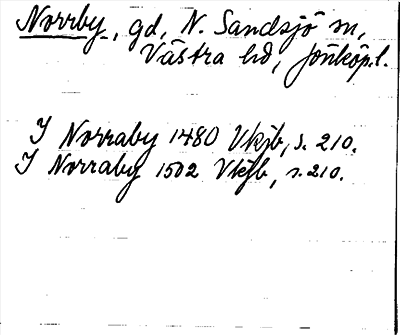 Norrby, gd, N. Sandsjö sn,
Västra hd, Jönköp. l.
I Norraby 1480 Vkjb, s. 210.
I Norraby 1502 Vkjb, s. 210.